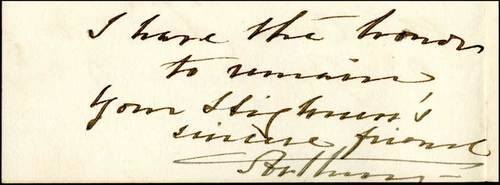 I have the honor
to remain
Your Highness's
sincere friend
Arthur